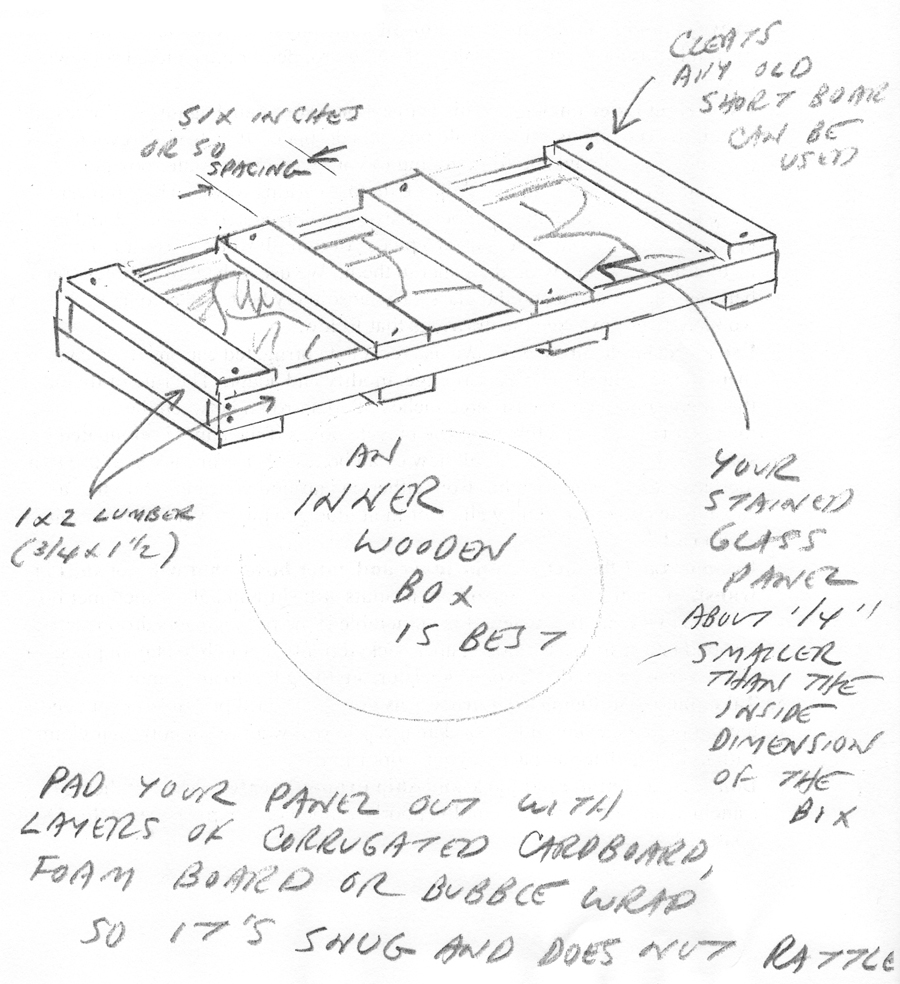 CLEATS
ANY OLD
SHORT BOAR
CAN BE
USED
SIX INCHES
OR SO
SPACING
1x2 LUMBER
(3/4 x 1 1/2)
AN
INNER
WOODEN
BOX
IS BEST
YOUR
STAINED
GLASS
PANEL
ABOUT 1/4"
SMALLER
THAN THE
INSIDE
DIMENSION
OF THE
BOX
PAD YOUR PANEL OUT WITH
LAYERS OF CORRUGATED CARDBOARD,
FOAM BOARD OR BUBBLE WRAP
SO IT'S SNUG AND DOES NOT RATTLE